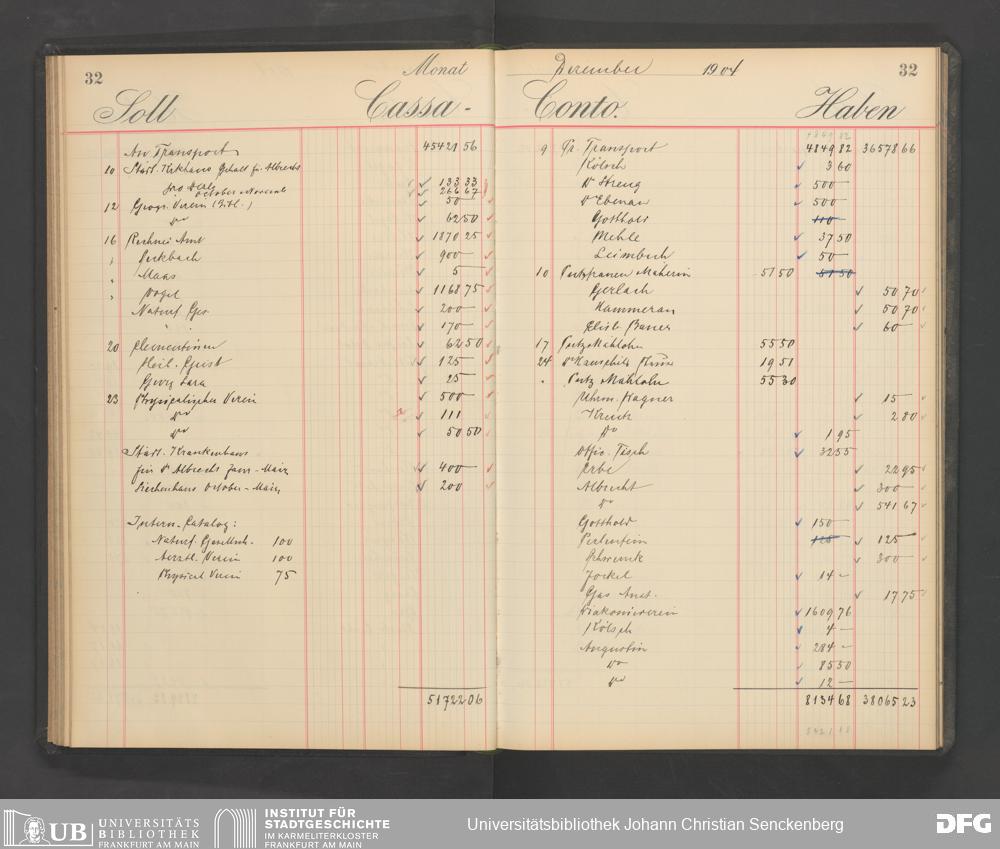 32
Monat
Soll
Cassa-
An Transport 45421 56
10 Städt. Gehalt für Albrecht
133 33
October-November 266 67
12 Geogr. Verein (Bibl.) 50 —
do 62 50
16 Rechnei Amt 1870 25
" 900 —
" Maas 5 —
" Vogel 1168 75
Naturf. Ges. 200 —
" 170 —
20 Clementinen 62 50
Heil. Geist 125 —
Georg Sara 25 —
23 Physikalischer Verein 500 —
do 111
do 50 50
Städt. Krankenhaus
für Dr Albrecht Jan-März 400 —
Siechenhaus October-März 200 —
Intern. Catalog:
Naturf. Gesellsch. 100
Aerztl. Verein 100
Physical Verein 75
51722 06
December 1904
32
Conto.
Haben
4849 82
9 Pr. Transport 4849 82 36578 66
Kölsch 3 60
Dr Streng 500 —
Dr Ebenau 500 —
Gotthold 110
Mehle 37 50
Leimbach 50 —
10 Putzfrauen 51 50 51 50
Gerlach 50 70
Hammeran 50 70
Elisb. Bauer 60 —
17 Putz Mahlohn 55 50
24 19 51
" Putz Mahlohn 55 30
Uhrm. Hagner 15 —
2 80
do 1 95
Offic. Tisch 32 55
Erbe 22 95
Albrecht 300 —
do 541 67
Gotthold 150 —
125 125 —
Schwenck 300 —
Jockel 14 —
Gas Anst. 17 75
Diakonieverein 1609 76
Kölsch 4 —
Augustin 284 —
do 85 50
do 12 —
8134 68 38065 23
UB UNIVERSITÄTS
BIBLIOTHEK
FRANKFURT AM MAIN
INSTITUT FÜR
STADTGESCHICHTE
IM KARMELITERKLOSTER
FRANKFURT AM MAIN
Universitätsbibliothek Johann Christian Senckenberg
DFG